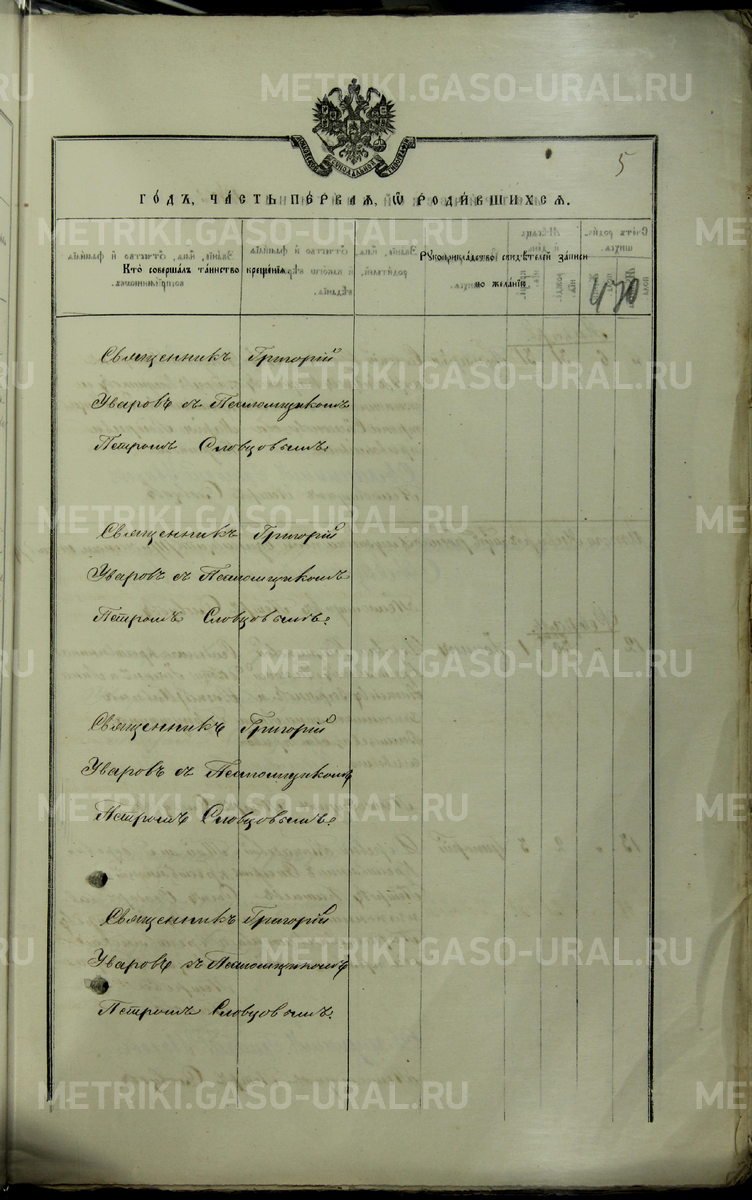 METRIKI.GASO-URAL.RU
5
ГОДЪ, ЧАСТЬ ПЕРВАЯ, Ѿ РОДИВШИХСЯ.
Кто совершалъ таинство крещенія.
Рукоприкладство свидѣтелей записи
по желанію
430
Священникъ Григорій
Уваровъ съ Псаломщикомъ
Петромъ Словцовымъ.
Священникъ Григорій
Уваровъ съ Псаломщикомъ
Петромъ Словцовымъ.
Священникъ Григорій
Уваровъ съ Псаломщикомъ
Петромъ Словцовымъ.
Священникъ Григорій
Уваровъ съ Псаломщикомъ
Петромъ Словцовымъ.